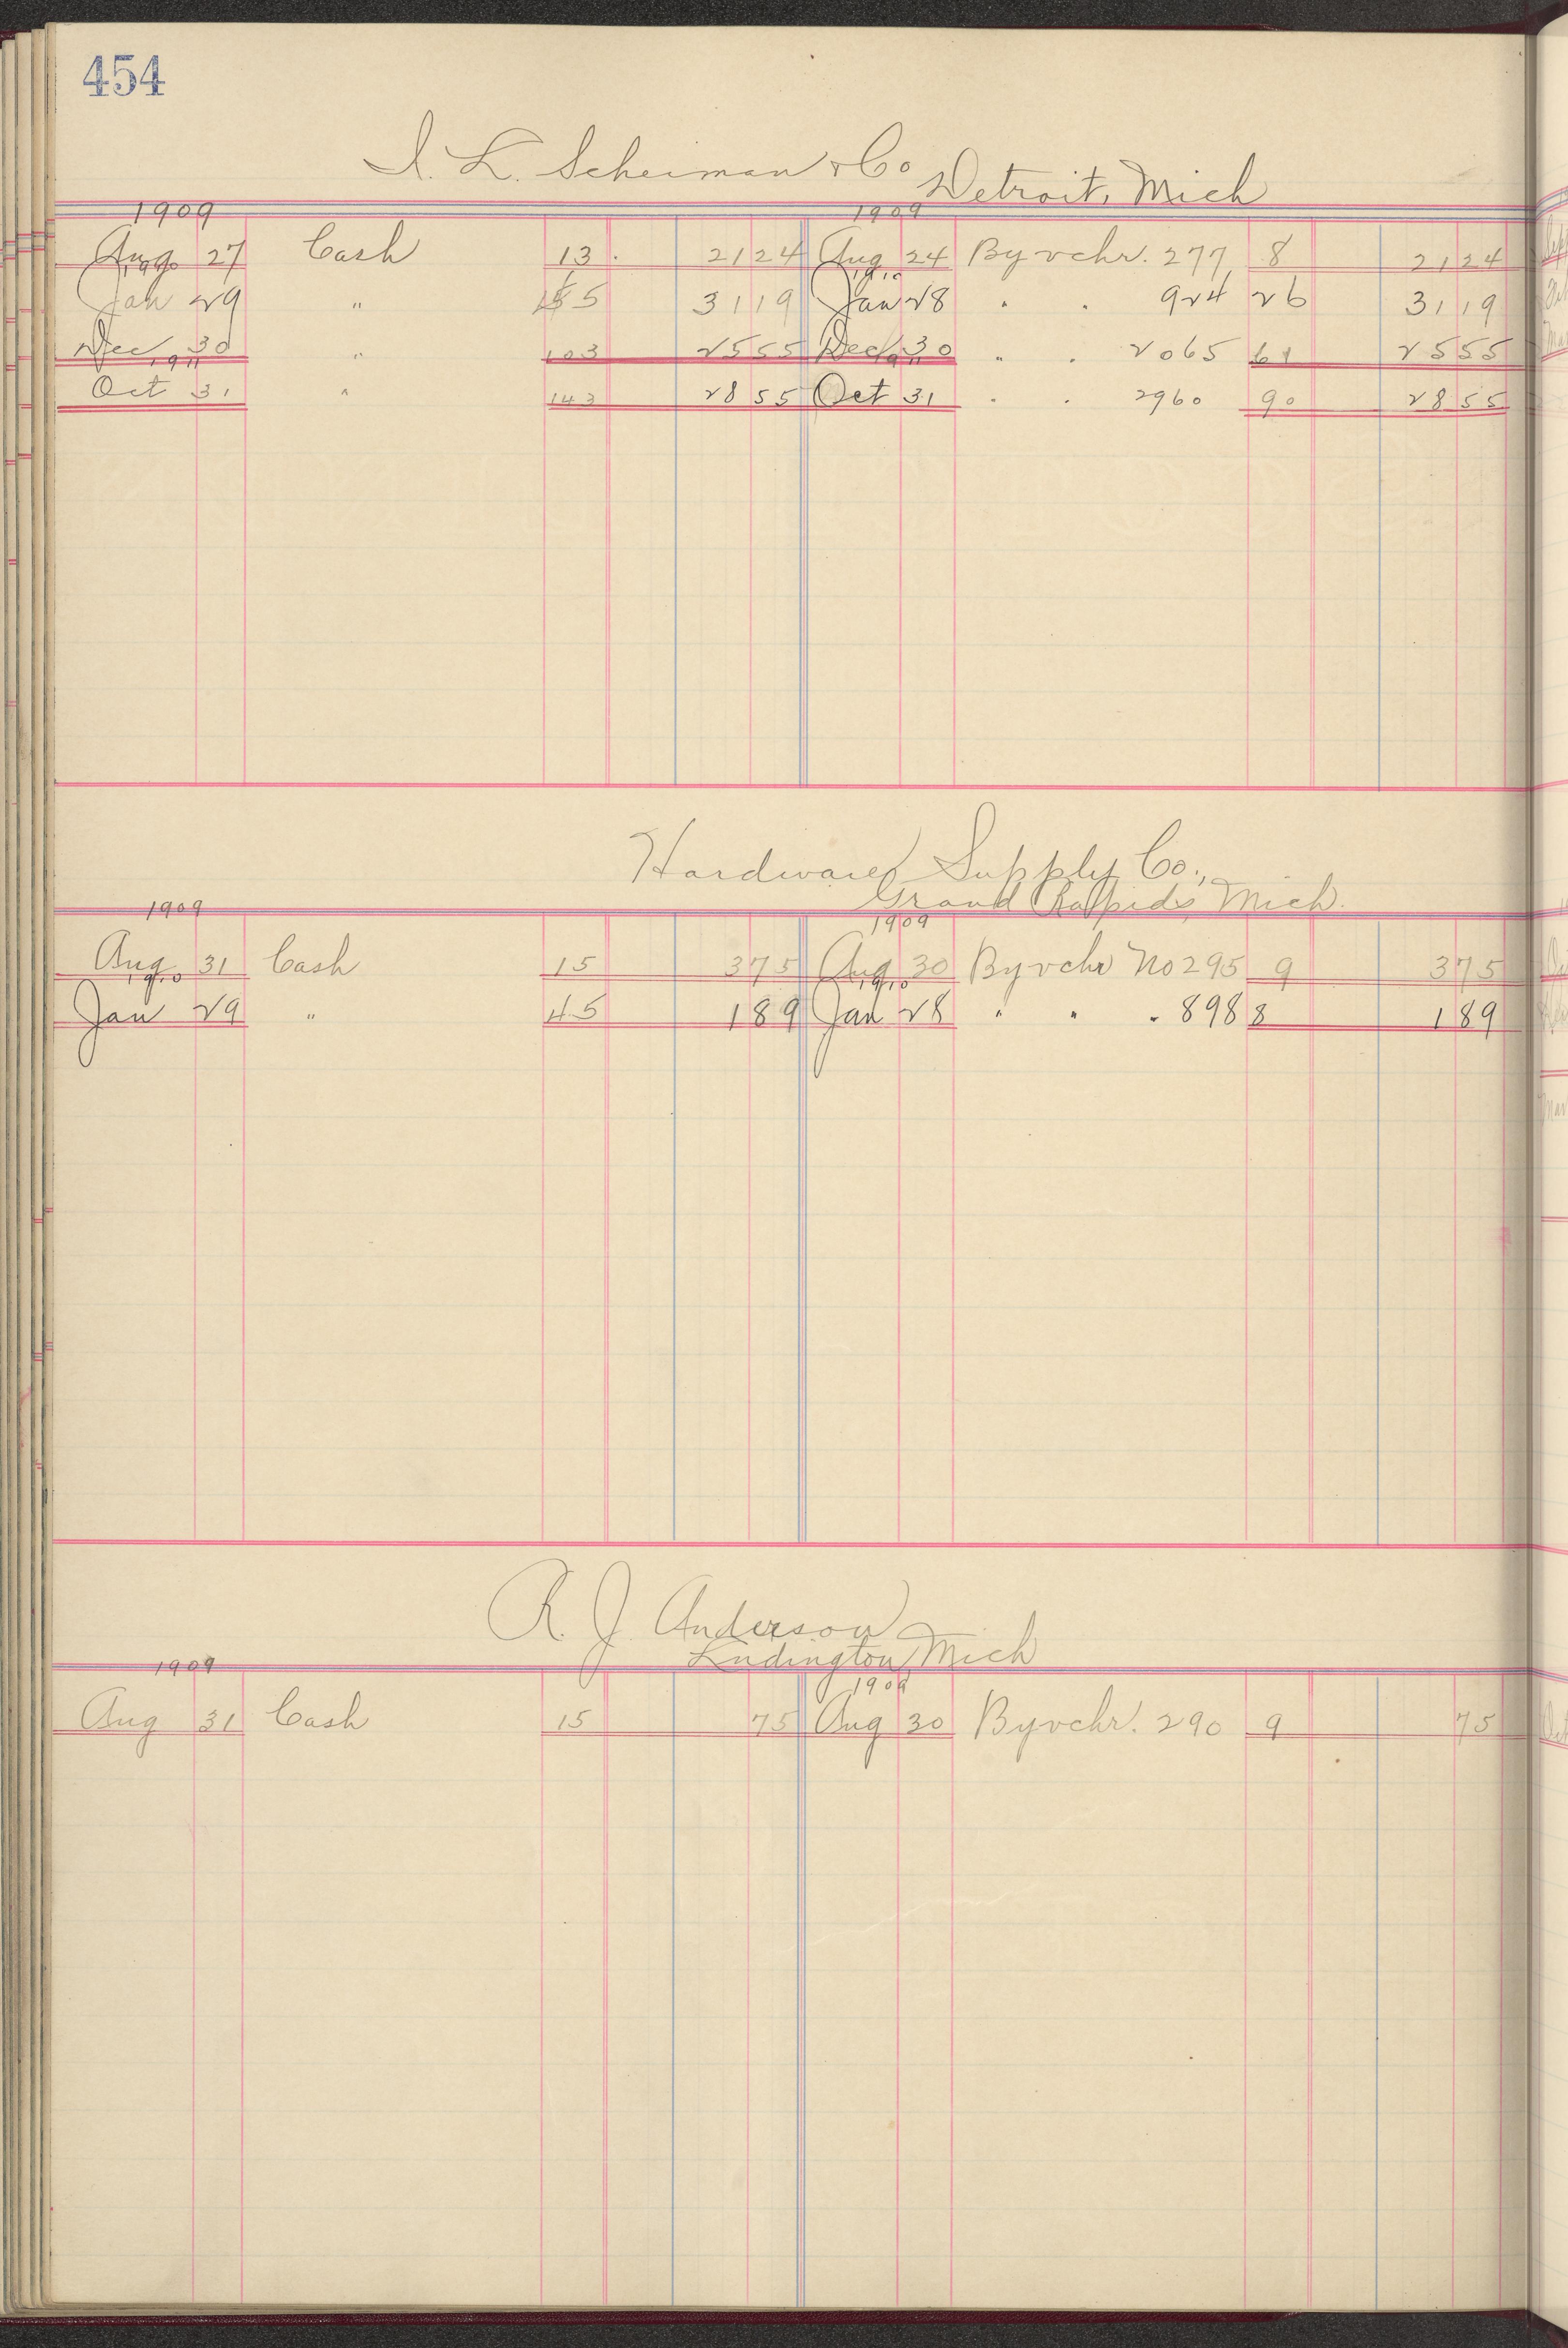 454
I. L. Scheiman & Co Detroit, Mich
1909 1909
Aug 27 Cash 13 21 24 Aug 24 By vchr. 277 8 21 24
1910 1910
Jan 29 " 45 31 19 Jan 28 " " 924 26 31 19
Dec 30 " 103 25 55 Dec 30 " " 2065 61 25 55
1911 1911
Oct 31 " 143 28 55 Oct 31 " " 2960 90 28 55
Hardware Supply Co.,
Grand Rapids Mich.
1909 1909
Aug 31 Cash 15 3 75 Aug 30 By vchr No 295 9 3 75
1910 1910
Jan 29 " 45 1 89 Jan 28 " " " 898 8 1 89
R. J. Anderson
Ludington Mich
1909 1909
Aug 31 Cash 15 75 Aug 30 By vchr. 290 9 75